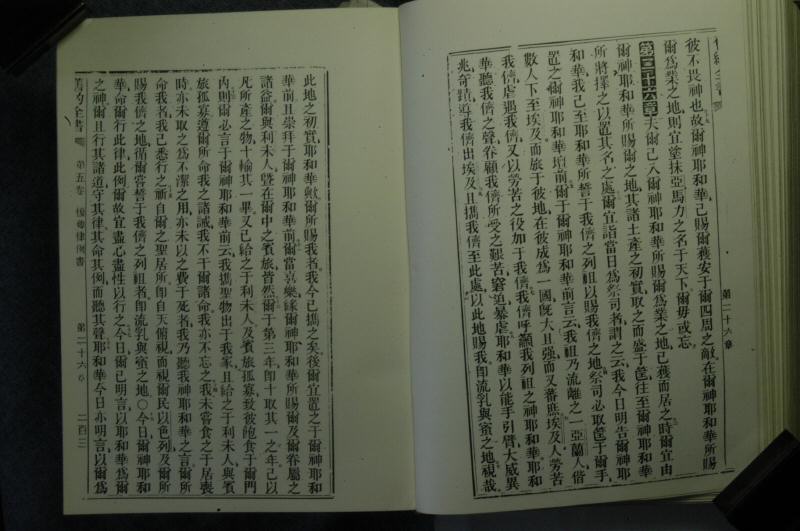 彼不畏神也故爾神耶和華已賜爾獲安于爾四周之敵在爾神耶和華所賜
爾為業之地則宜塗抹亞馬力之名于天下爾毋或忘
第二十六章 夫爾已入爾神耶和華所賜爾為業之地已獲而居之時爾宜由
爾神耶和華所賜爾之地其諸土產之初實取之而盛于筐往至爾神耶和華
所將擇之以置其名之處爾宜詣當日為祭司者謂之云我今日明告爾神耶
和華我已至耶和華所誓于我儕之列祖以賜我儕之地祭司必取筐于爾手
置之爾神耶和華壇前爾于爾神耶和華前言云我祖乃流離之一亞蘭人偕
數人下至埃及而旅于彼地在彼成為一國既大且強而又蕃庶埃及人勞苦
我儕虐遇我儕又以勞苦之役加于我儕我儕呼籲我列祖之神耶和華耶和
華聽我儕之聲眷顧我儕所受之艱苦窘迫暴虐耶和華以能手引臂大威異
兆奇蹟導我儕出埃及且攜我儕至此處以此地賜我即流乳與蜜之地視哉
第二十六章
此地之初實耶和華歟爾所賜我者我今已攜之矣後爾宜置之于爾神耶和
華前且崇拜于爾神耶和華前爾當喜樂緣爾神耶和華所賜爾及爾眷屬之
諸益爾與利未人暨在爾中之賓旅皆然爾于第三年即十取其一之年已以
凡所產之物十輸其一畢又已給之于利未人及賓旅孤寡致彼飽食于爾門
內則爾必言于爾神耶和華前云我攜聖物出于我家且給之于利未人與賓
旅孤寡遵爾所命我之諸誡我不干爾諸命我亦不忘之我未嘗食之于居喪
時亦未取之為不潔之用亦未以之費于死者我乃聽我神耶和華之言爾所
命我者我已悉行之祈自爾之聖居所即自天俯視而視爾民以色列及爾所
賜我儕之地循爾嘗誓于我儕之列祖者即流乳與蜜之地○今日爾神耶和
華命爾行此律此例爾故宜盡心盡性以行之今日爾已明言以耶和華為爾
之神爾且行其諸道守其律其命其例而聽其聲耶和華今日亦明言以爾為
舊約全書 第五卷 復傳律例書 第二十六章 二百三